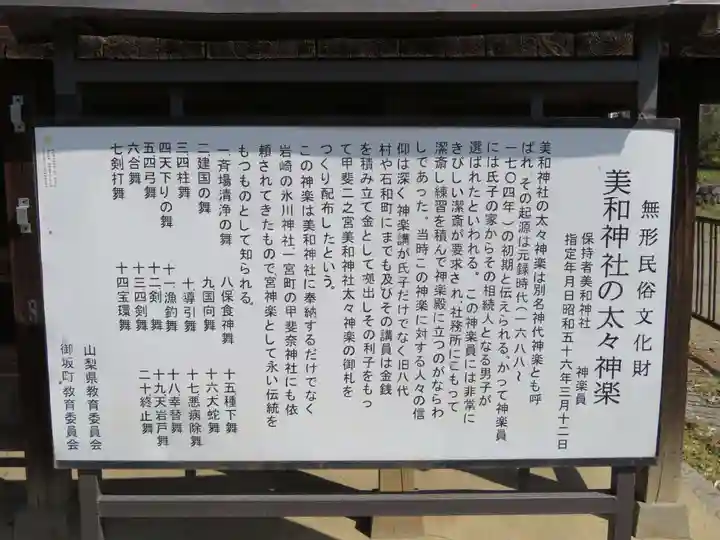 無形民俗文化財
美和神社の太々神楽
保持者美和神社 神楽員
指定年月日昭和五十六年三月十二日
美和神社の太々神楽は別名神代神楽とも呼
ばれ、その起源は元録時代(一六八八〜
一七〇四年)の初期と伝えられる。かつて神楽員
には氏子の家からその相続人となる男子が
選ばれたといわれる。この神楽員には非常に
きびしい潔斎が要求され、社務所にこもって
潔斎し練習を積んで神楽殿に立つのがならわ
しであった。当時この神楽に対する人々の信
仰は深く神楽講が氏子だけでなく旧八代
村や石和町にまでも及びその講員は金銭
を積み立て金として拠出しその利子をもっ
て甲斐二之宮美和神社太々神楽の御札を
つくり配布したという。
この神楽は美和神社に奉納するだけでなく
岩崎の氷川神社、一宮町の甲斐奈神社にも依
頼されてきたもので宮神楽として永い伝統を
もつものとして知られる。
一、斉場清浄の舞 八保食神舞 十五種下舞
二、建国の舞 九国向舞 十六大蛇舞
三、四柱舞 十導引舞 十七悪病除舞
四天下りの舞 十一漁釣舞 十八幸替舞
五四弓舞 十二剣舞 十九天岩戸舞
六合舞 十三四剣舞 二十終止舞
七剣打舞 十四宝環舞
山梨県教育委員会
御坂町教育委員会